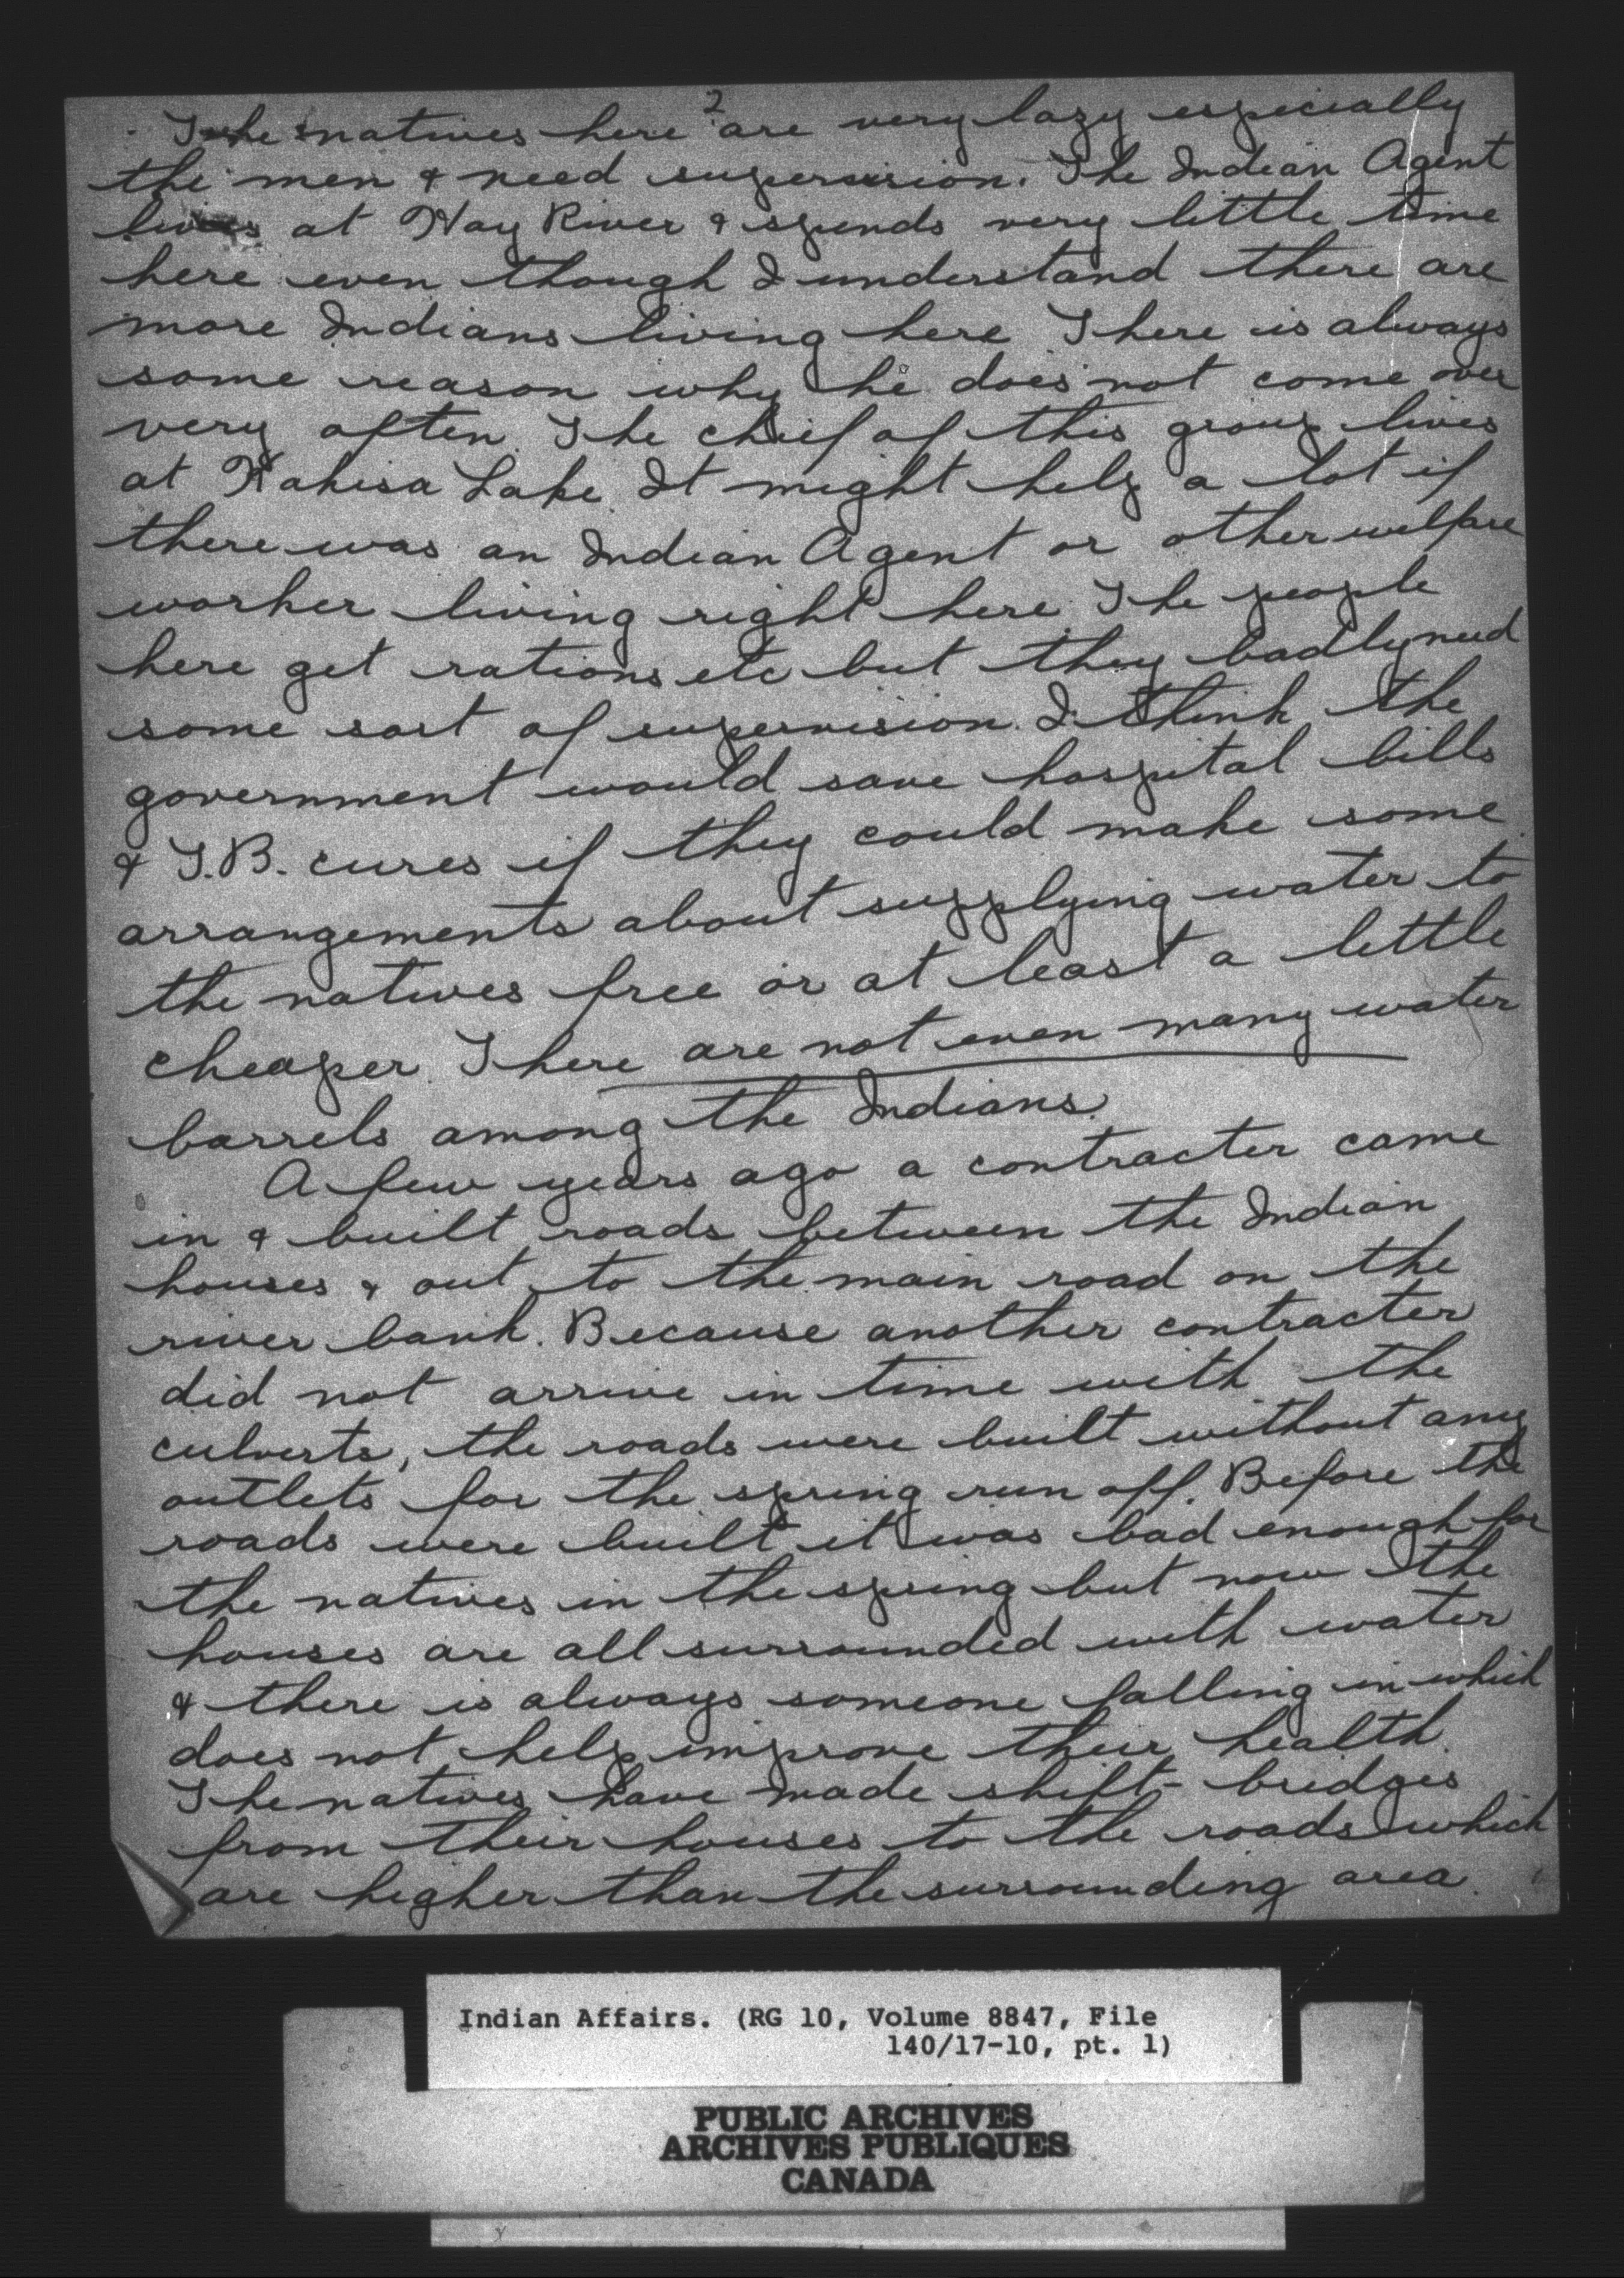 2
The natives here are very lazy especially
the men & need supervision. The Indian Agent
lives at Hay River & spends very little time
here even though I understand there are
more Indians living here There is always
some reason why he does not come over
very often. The chief of this group lives
at Kakisa Lake. It might help a lot if
there was an Indian Agent or other welfare
worker living right here. The people
here get rations etc but they badly need
some sort of supervision. I think the
government would save hospital bills
& T.B. cures if they could make some
arrangements about supplying water to
the natives free or at least a little
cheaper. There are not even many water
barrels among the Indians.
A few years ago a contracter came
in & built roads between the Indian
houses & out to the main road on the
river bank. Because another contracter
did not arrive in time with the
culverts, the roads were built without any
outlets for the spring run off. Before the
roads were built it was bad enough for
the natives in the spring but now the
houses are all surrounded with water
& there is always someone falling in which
does not help improve their health.
The natives have made shift-bridges
from their houses to the roads which
are higher than the surrounding area.
Indian Affairs. (RG 10, Volume 8847, File
140/17-10, pt. 1)
PUBLIC ARCHIVES
ARCHIVES PUBLIQUES
CANADA